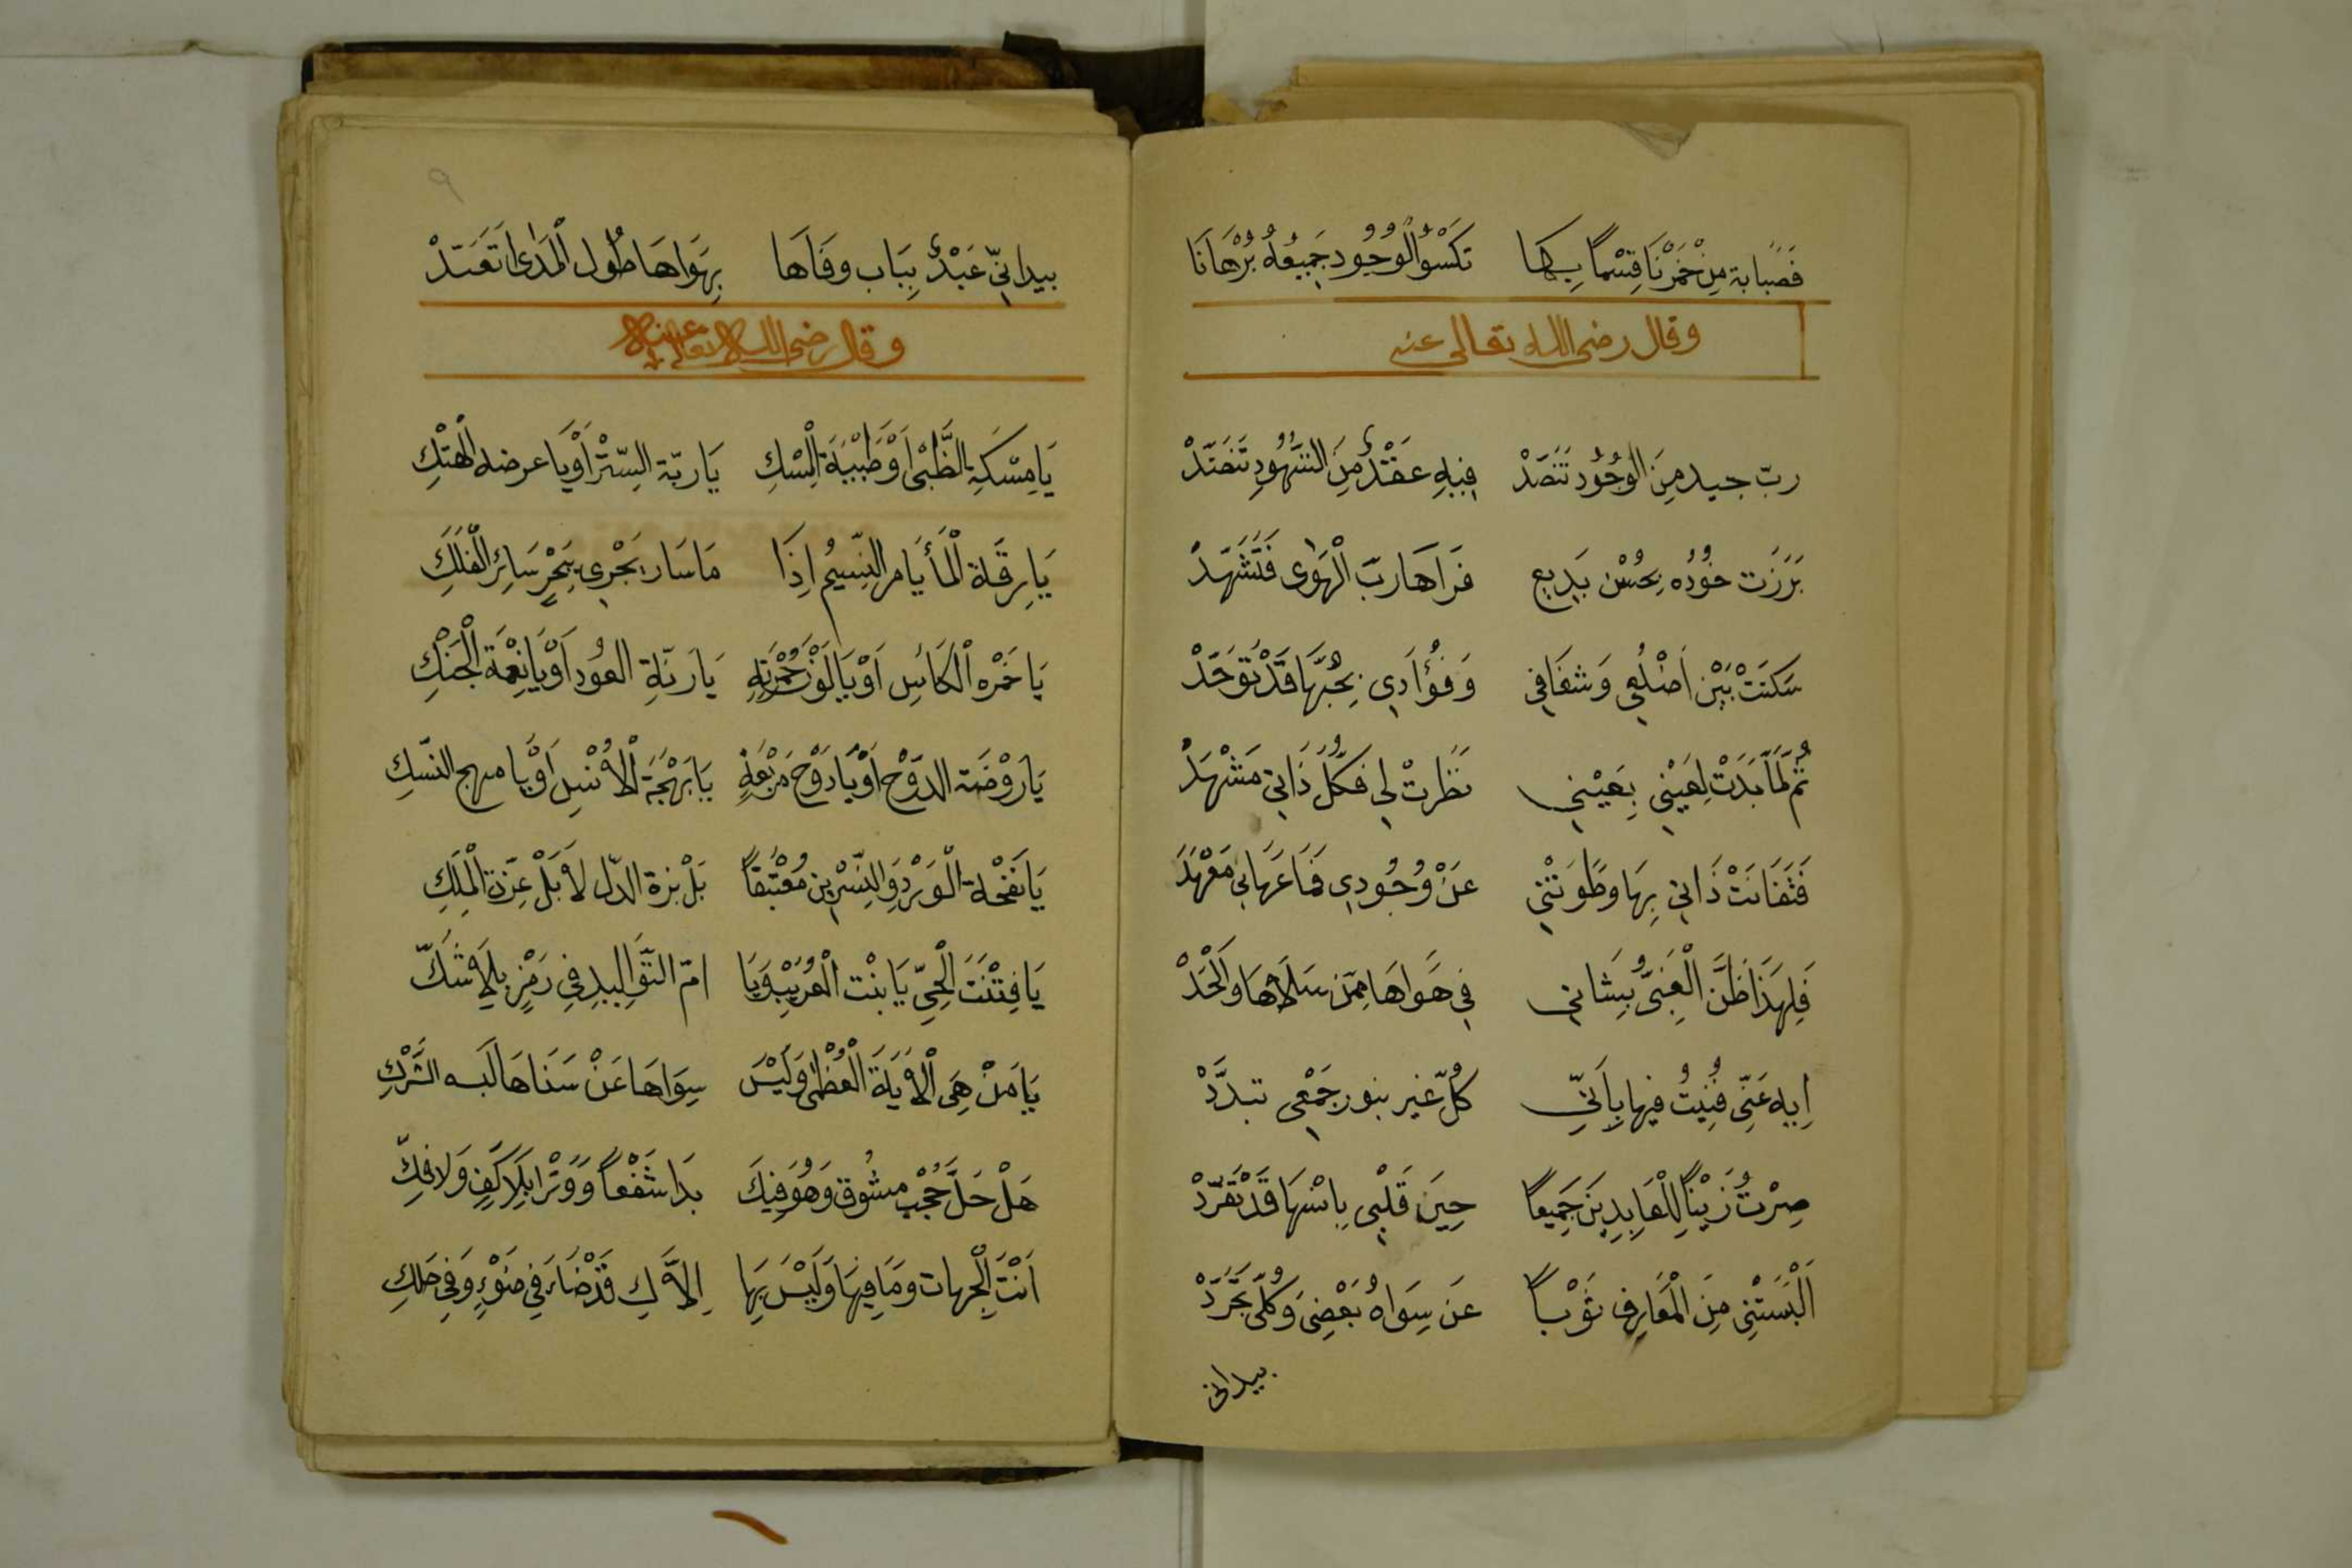 فَصُبَابة مِنْ خَمْرِنَا قِسْمًا بِهَا تَكْسُو الْوُجُودِ جَمِيعُهُ بُرْهَانَا
وقال رضى الله تعالى عنه
ربّ جيد مِنَ الْوُجُودِ تَنَضَّدْ فِيهِ عَقْدٌ مِنَ الشُّهُودِ تَنَضَّدْ
بَرَزَت خُوْدُه بِحُسْن بَدِيع فَرَاهَا رَبّ الْهَوٰى فَتَشَهَّدْ
سَكَنَتْ بَيْن اَضْلُعِي وَشغَافِي وَفُؤَادِي بِحُبِّهَا قَدْ تَوَحَّدْ
ثُمَّ لَمَّا بَدَتْ لِعَيْنِي بِعَيْنِي نَظَرتْ لِي فَكُلُّ ذَاتِي مَشْهَدْ
فَتَفَانَتْ ذَاتِي بِهَا وطَوَتْنِي عَنْ وُجُودِي فَمَا عَرَانِي مَعْهَدْ
فَلِهَذَا ظَنَّ الْغَبِىُّ بِشَانِي فِي هَوَاهَا مِمَّن سَلَاهَا وَالْحَدْ
اِيهِ عَنِّي فُنِيتُ فيها بِاَنِّي كُلّ غير بنور جَمْعِي تبدَّدْ
صِرْتُ زَيْنًا لِلْعَابِدِينَ جَمِيعًا حِينَ قَلْبِي بِاسْمِهَا قَدْ تَفَرَّدْ
اَلْبَسَتْنِي مِنَ الْمَعَارِف ثَوْبًا عَن سِوَاهُ بَعْضِى وَكُلِّى تجَرَّدْ
بيدانى
٩
بيدانِيّ عَبْدٌ بِبَاب وفَاهَا بِهَوَاهَا طُول الْمَدٰى اتَعَبَّدْ
وقال رضى الله تعالى عنه
يَا مِسْكَةِ الظَّبْىِ اَوْ ظَبْيَةَ الْمِسْكِ يَا ربّة السِّتْر اَوْ يَا عرضه الْهَتْكِ
يَا رِقّة الْمَأ يَا مر النَّسِيْم اِذَا مَا سَار يَجْرِى بِبَحْرٍ سَائِر الْفُلَكِ
يَا خَمْره الْكَاسِ اَوْ يَا لَوْن خُمْرَتِهِ يَا رَنَّةِ العُودِ اَوْ يَا نغْمَة الْجَنْكِ
يَا رَوْضَة الدَّوْحِ اَوْ يَا دَوْحَ مَرْبَعِهِ يَا بَهْجَة الْأُنْسِ اَوْ يَا مهج النّسكِ
يَا نَفْحَة الْوَرْدِ وَالنِّسْرِين مُغْتَبِقاً بَلْ بزة الدّل لَا بَلْ عِزّة الْمَلِكِ
يَا فِتْنَتَ الْحَيّ يَا بنْت الْعُرَيْبِ وَيَا امّ التَّوَالِيدِ فِي رَمْزٍ بِلَا شَكّ
يَا مَنْ هِيَ الْاٰيَة الْعُظْمٰى وَلَيْسَ سِوَاهَا عَنْ سَنَاهَا لَبه الشّركِ
هَلْ حَلَّ حُجْبِ مشُوق وَهُوَ فِيكَ بَدَا شَفْعاً وَوَتْرًا بِلَا كَيْفٍ وَلا فكّ
اَنْتَ الْجِهات ومَا فِيهَا وَلَيْسَ بِهَا اِلَّا لكِ قَدْ ضَاءَ فِي ضَوْءٍ وَفِي حلكِ